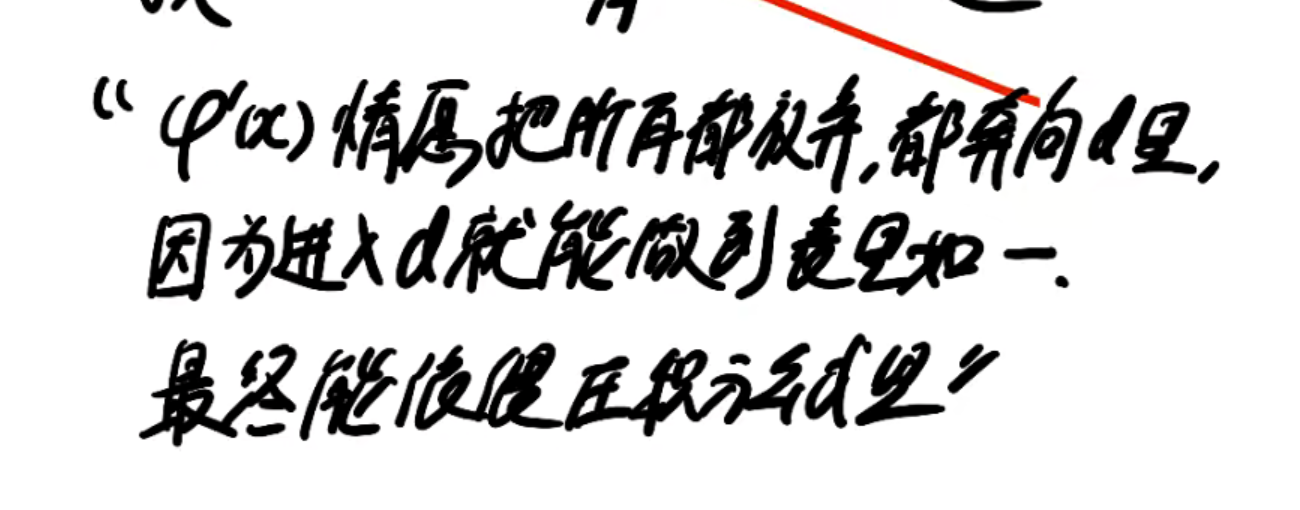 “φ'(x)情愿把所有都放弃,都奔向d里,
因为进入d就能做到表里如一.
最终能依偎在积分的d里”